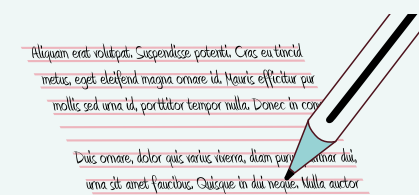 Aliquam erat volutpat. Suspendisse potenti. Cras eu tincid
metus, eget eleifend magna ornare id. Mauris efficitur pur
mollis sed urna id, porttitor tempor nulla. Donec in con
Duis ornare, dolor quis varius viverra, diam puru vinar dui,
urna sit amet faucibus. Quisque in dui neque. Nulla auctor